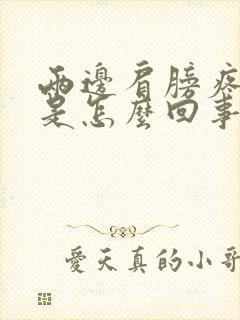 兩邊肩膀疼
是怎麼回事
愛天真的小哥